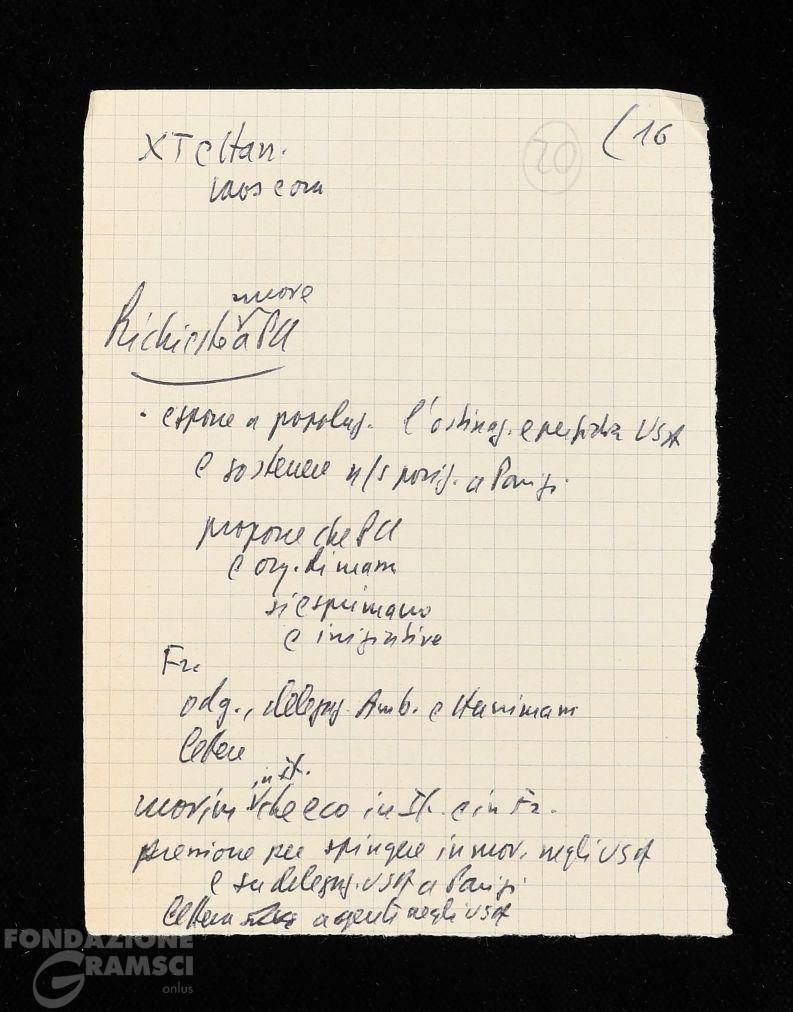 (16
20
XT e Han.
Mos e on
nuove
Richieste a PCI
. esporre a popolaz. l'ostinaz. e perfidia USA
e sostenere n/s posiz. a Parigi
proporre che PCI
e org. di massa
si esprimano
e iniziative
Fr.
odg., delegaz. Amb. e Harriman
lettere
in It.
movim che eco in It. e in Fr.
pressione per spingere in mov. negli USA
e su delegaz. USA a Parigi
lettera a gente negli USA
FONDAZIONE
GRAMSCI
onlus